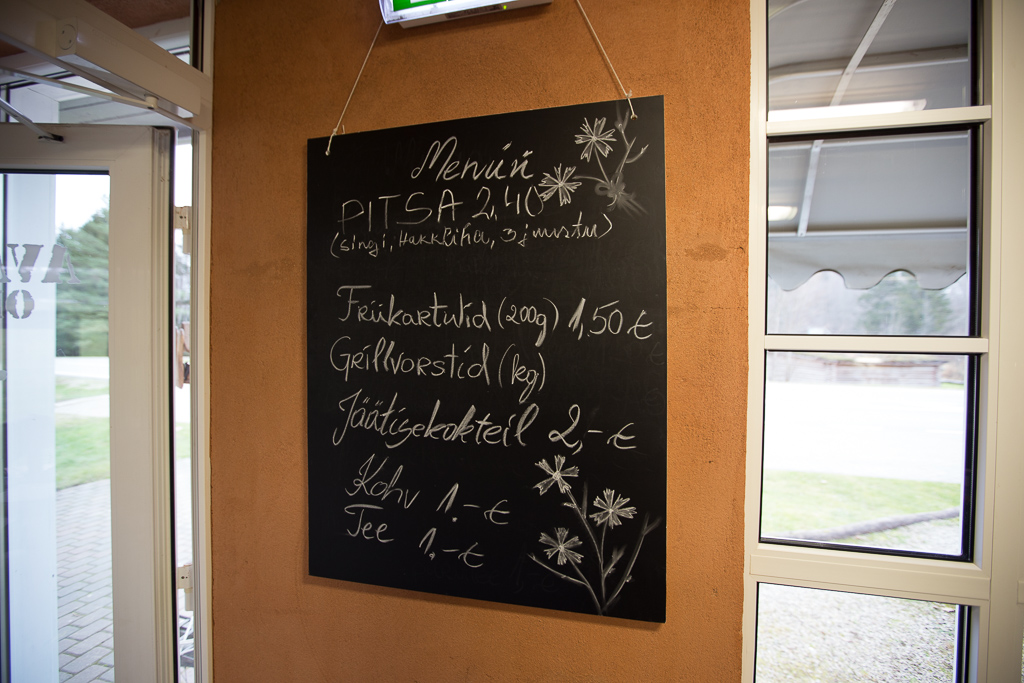 Menüü
PITSA 2,40
(singi, Hakkliha, 3 j mustu)
Friikartulid (200g) 1,50 €
Grillvorstid (kg)
Jäätisekokteil 2,- €
Kohv 1.- €
Tee 1,- €